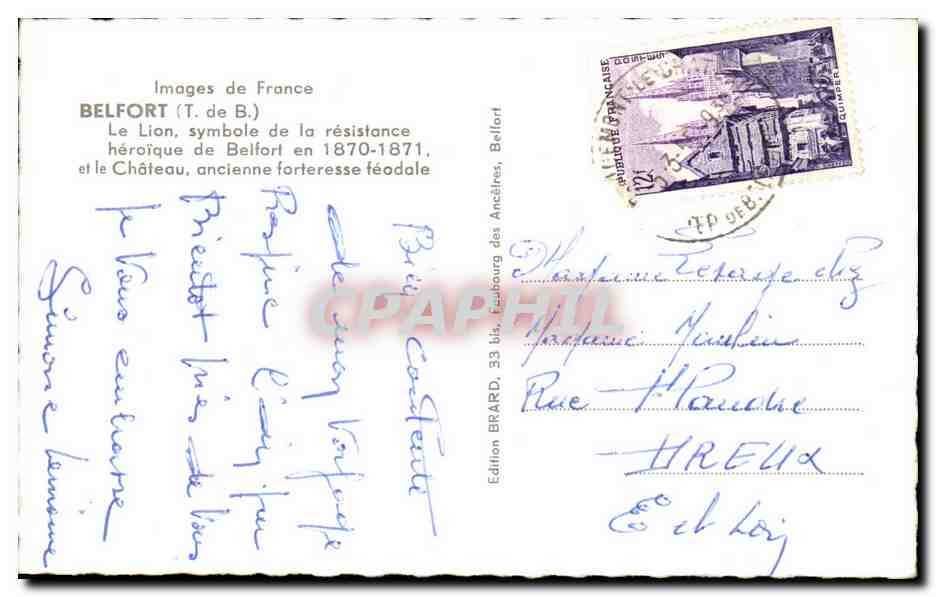 Images de France
BELFORT (T. de B.)
Le Lion, symbole de la résistance
héroïque de Belfort en 1870-1871,
et le Château, ancienne forteresse féodale
Bien Contente
de mon Voyage
Bientôt près de Vous
Je Vous embrasse
Simone Lemoine
Edition BRARD, 33 bis, Faubourg des Ancêtres, Belfort
REPUBLIQUE FRANÇAISE
POSTES
12F
QUIMPER
TR DE B.
Madame Lesage chez
Madame Moulin
Rue
DREUX
E et Loir
CPAPHIL